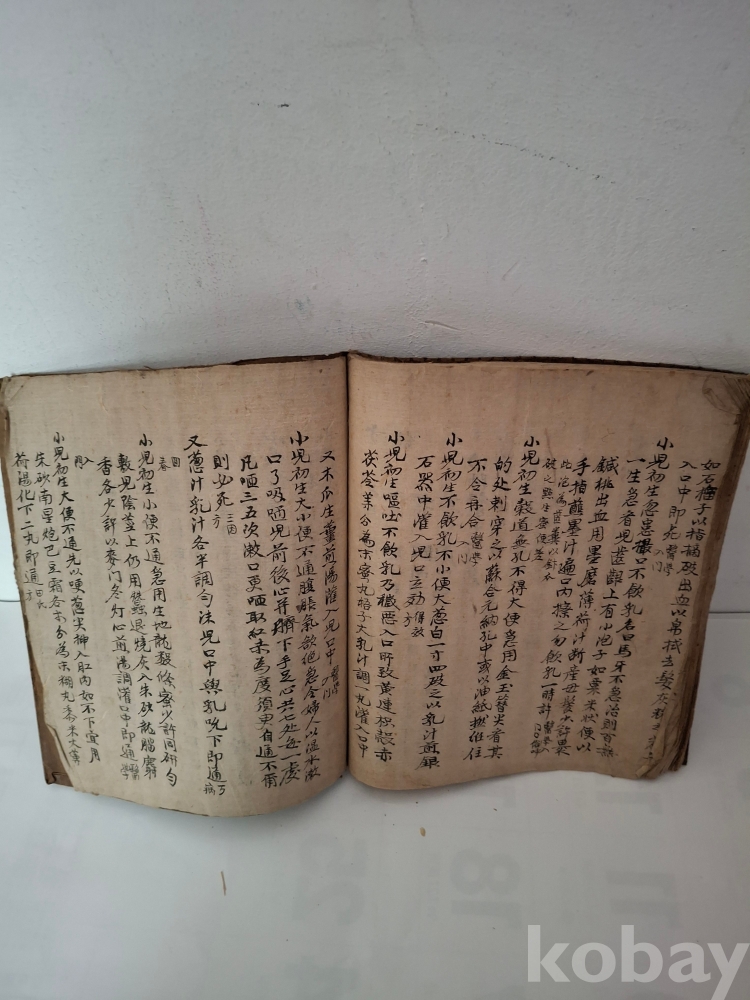 如石榴子以指摘破出血以帛拭去髮灰糝之
入口中即死 醫學入門
小兒初生忽患撮口不飲乳名曰馬牙不急治則百無
一生急看兒齒齦上有小泡子如粟米狀便以
鍼挑出血用墨磨薄荷汁斷産母髮少許裹
手指蘸墨汁遍口內擦之勿飲乳一時
小兒初生穀道無孔不得大便急用金玉簪尖看其
的处刺穿之以蘇合元納孔中或以油紙撚仛住
不令再合 醫學入門
小兒初生不飲乳不小便大葱白一寸四破之以乳汁煎銀
石器中灌入兒口立効 得效
小兒初生嘔吐不飲乳乃穢惡入口所致黃連枳殼赤
茯苓等分為末蜜丸梧子大乳汁調一丸灌入口中
又木瓜生薑煎湯灌入兒口中 醫學入門
小兒初生大小便不通腹脹氣欲絶急令婦人以溫水漱
口了吸哂兒前後心并臍下手足心共七処每一處
凡哂三五次漱口更哂取紅赤為度須臾自通不爾
則必死 三因方
又葱汁乳汁各半調勻抹兒口中與乳吮下即通 万病回春
小兒初生小便不通急用生地龍數條蜜少許同研勻
敷兒陰莖上仍用蠶退燒灰入朱砂龍腦麝
香各少許以麥门冬灯心煎湯調灌口中即通 醫學入門
小兒初生大便不通先以硬葱尖挿入肛內如不下宜用
朱砂南星炮巴豆霜各等分為末糊丸黍米大薄
荷湯化下二丸即通 田氏方
kobay